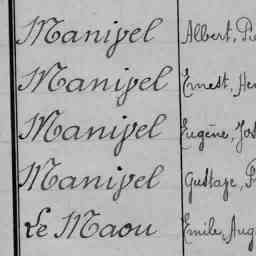 Manivel Albert, Pie
Manivel Ernest, Hen
Manivel Eugène, Jos
Manivel Gustave, F
Le Maou Emile, Aug